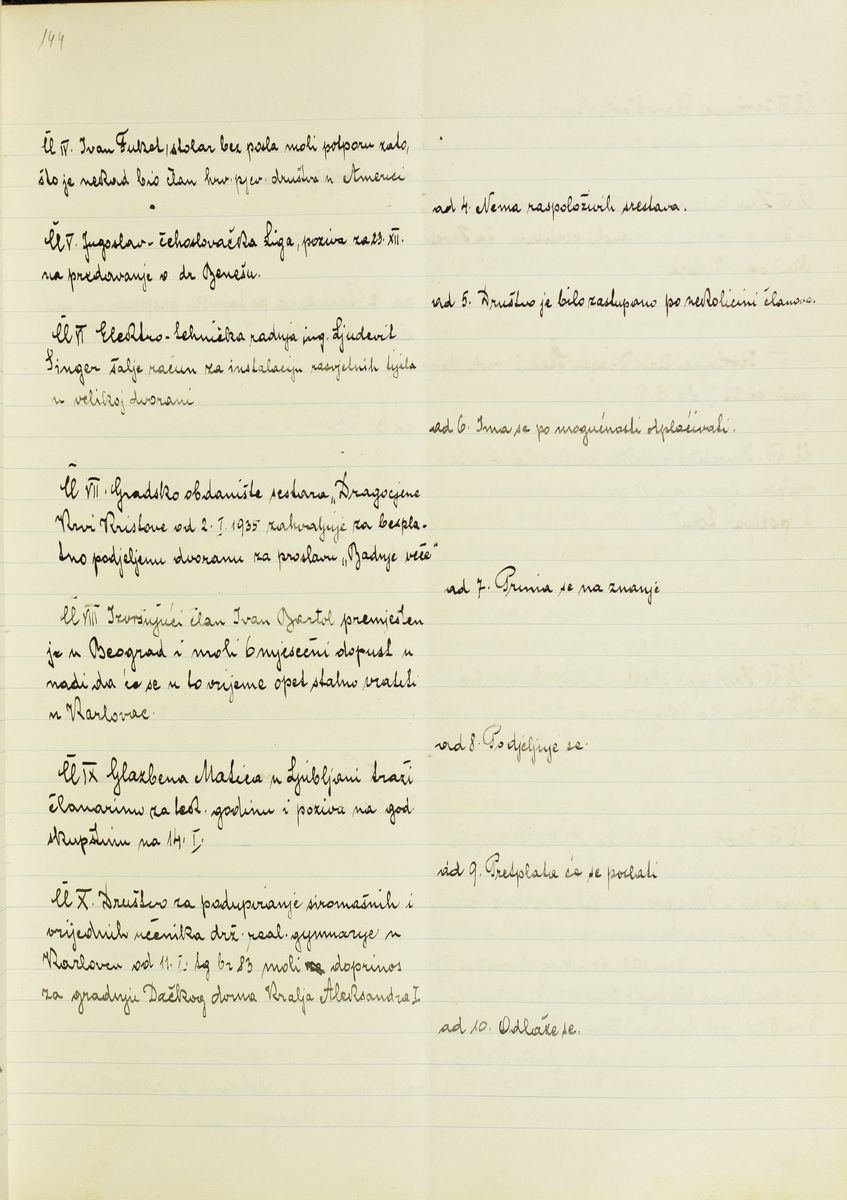 144
Čl IV. Ivan Fuket, stolar bez posla moli potporu zato,
što je nekad bio član hrv. pjev. društva u Americi
ad 4. Nema raspoloživih srestava.
Čl V. Jugoslav-čehoslovačka Liga, poziva za 23. XII.
na predavanje o dr Benešu.
ad 5. Društvo je bilo zastupano po nekolicini članova.
Čl VI Elektro-tehnička radnja ing. Ljudevit
Singer šalje račun za instalaciju rasvjetnih tijela
u velikoj dvorani
ad 6. Ima se po mogućnosti otplaćivati.
Čl VII. Gradsko obdanište sestara „Dragocjene
Krvi Kristove od 2. I. 1935 zahvaljuje za bespla-
tno podjeljenu dvoranu za proslavu „Badnje veče"
ad 7. Prima se na znanje
Čl VIII Izvršujući član Ivan Bartol premješten
je u Beograd i moli 6 mjesečni dopust u
nadi da će se u to vrijeme opet stalno vratiti
u Karlovac.
ad 8. Podjeljuje se.
Čl IX Glazbena Matica u Ljubljani traži
članarinu za tek. godinu i poziva na god
skupštinu na 14. I.
ad 9. Pretplata će se poslati
Čl X. Društvo za podupiranje siromašnih i
vrijednih učenika drž. real. gymnazije u
Karlovcu od 11. I. tg br 83 moli doprinos
za gradnju Dačkog doma Kralja Aleksandra I
ad 10. Odlaže se.